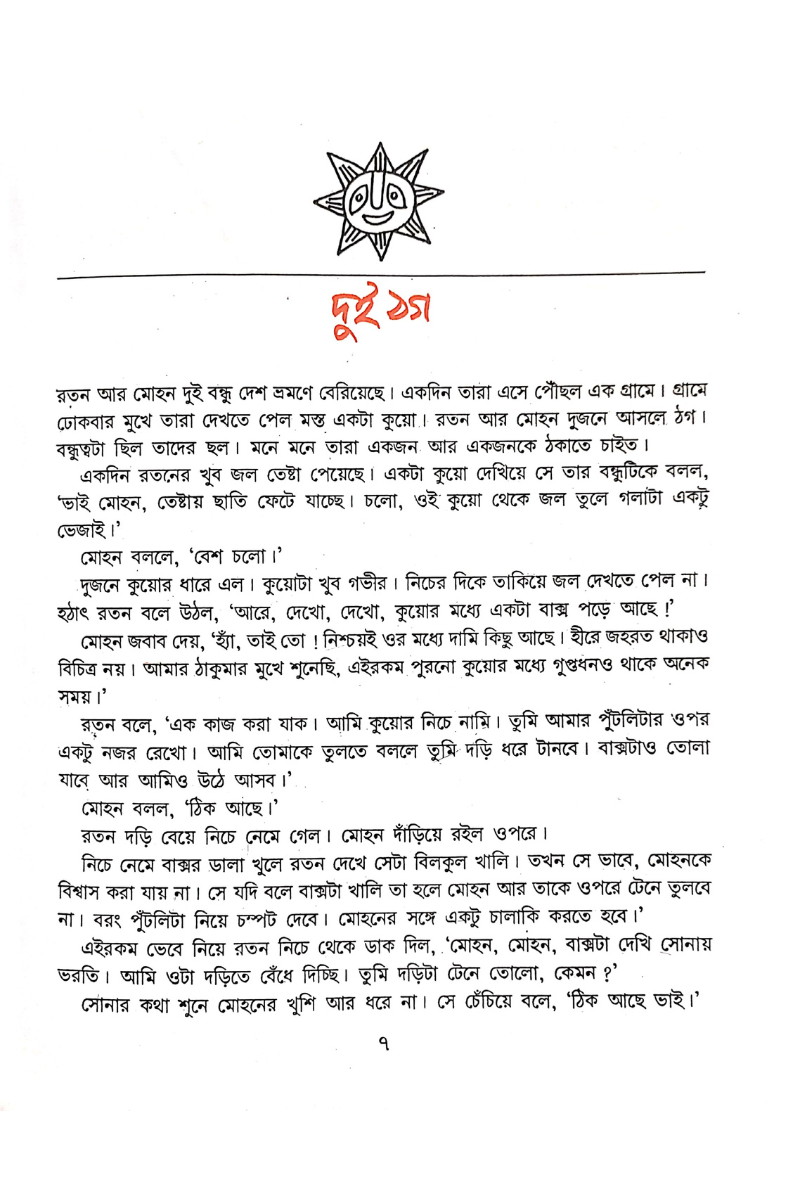 দুই ঠগ
রতন আর মোহন দুই বন্ধু দেশ ভ্রমণে বেরিয়েছে। একদিন তারা এসে পৌঁছল এক গ্রামে। গ্রামে
ঢোকবার মুখে তারা দেখতে পেল মস্ত একটা কুয়ো। রতন আর মোহন দুজনে আসলে ঠগ।
বন্ধুত্বটা ছিল তাদের ছল। মনে মনে তারা একজন আর একজনকে ঠকাতে চাইত।
একদিন রতনের খুব জল তেষ্টা পেয়েছে। একটা কুয়ো দেখিয়ে সে তার বন্ধুটিকে বলল,
‘ভাই মোহন, তেষ্টায় ছাতি ফেটে যাচ্ছে। চলো, ওই কুয়ো থেকে জল তুলে গলাটা একটু
ভেজাই।’
মোহন বললে, ‘বেশ চলো।’
দুজনে কুয়োর ধারে এল। কুয়োটা খুব গভীর। নিচের দিকে তাকিয়ে জল দেখতে পেল না।
হঠাৎ রতন বলে উঠল, ‘আরে, দেখো, দেখো, কুয়োর মধ্যে একটা বাক্স পড়ে আছে !’
মোহন জবাব দেয়, ‘হ্যাঁ, তাই তো ! নিশ্চয়ই ওর মধ্যে দামি কিছু আছে। হীরে জহরত থাকাও
বিচিত্র নয়। আমার ঠাকুমার মুখে শুনেছি, এইরকম পুরনো কুয়োর মধ্যে গুপ্তধনও থাকে অনেক
সময়।’
রতন বলে, ‘এক কাজ করা যাক। আমি কুয়োর নিচে নামি। তুমি আমার পুঁটলিটার ওপর
একটু নজর রেখো। আমি তোমাকে তুলতে বললে তুমি দড়ি ধরে টানবে। বাক্সটাও তোলা
যাবে আর আমিও উঠে আসব।’
মোহন বলল, ‘ঠিক আছে।’
রতন দড়ি বেয়ে নিচে নেমে গেল। মোহন দাঁড়িয়ে রইল ওপরে।
নিচে নেমে বাক্সর ডালা খুলে রতন দেখে সেটা বিলকুল খালি। তখন সে ভাবে, মোহনকে
বিশ্বাস করা যায় না। সে যদি বলে বাক্সটা খালি তা হলে মোহন আর তাকে ওপরে টেনে তুলবে
না। বরং পুঁটলিটা নিয়ে চম্পট দেবে। মোহনের সঙ্গে একটু চালাকি করতে হবে।’
এইরকম ভেবে নিয়ে রতন নিচে থেকে ডাক দিল, ‘মোহন, মোহন, বাক্সটা দেখি সোনায়
ভরতি। আমি ওটা দড়িতে বেঁধে দিচ্ছি। তুমি দড়িটা টেনে তোলো, কেমন ?’
সোনার কথা শুনে মোহনের খুশি আর ধরে না। সে চেঁচিয়ে বলে, ‘ঠিক আছে ভাই।’
৭